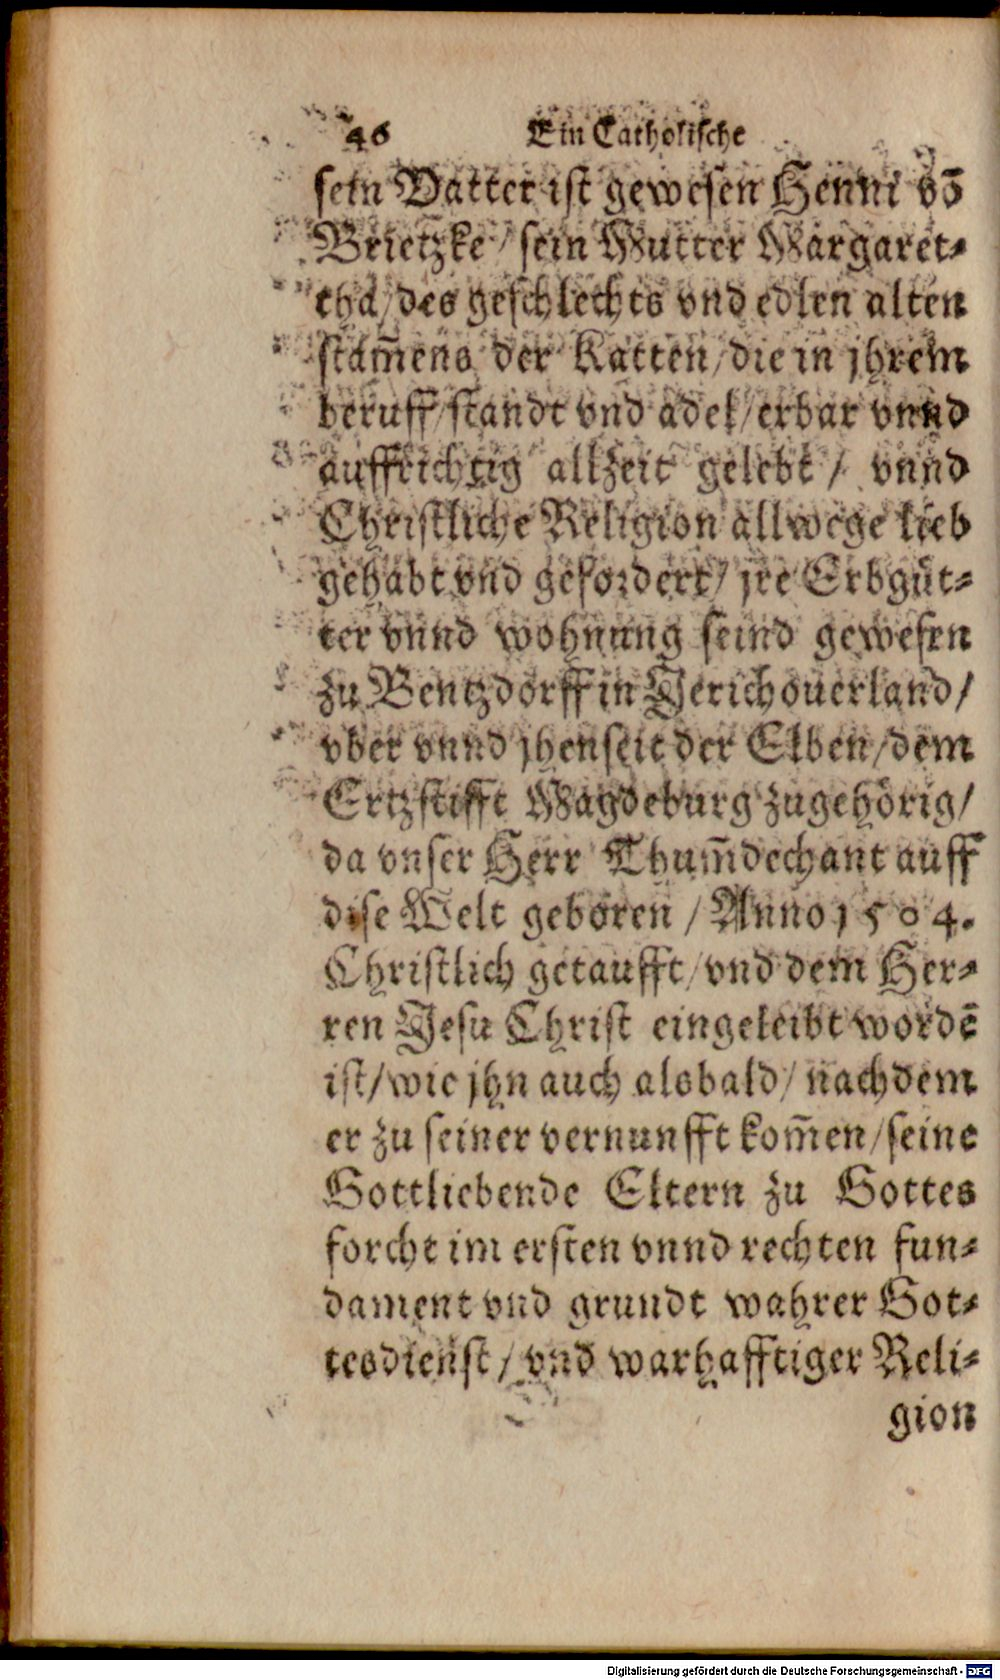 46 Ein Catholische
sein Vatter ist gewesen Henni võ
Brietzke / sein Mutter Margaret-
tha / des geschlechts vnd edlen alten
stam̄ens der Katten / die in jhrem
beruff / standt vnd adel / erbar vnnd
auffrichtig allzeit gelebt / vnnd
Christliche Religion allwege lieb
gehabt vnd gefordert / jre Erbgüt-
ter vnnd wohnung seind gewesen
zu Bentzdorff in Jerichouerland /
vber vnnd jhenseit der Elben / dem
Ertzstifft Magdeburg zugehörig /
da vnser Herr Thum̄dechant auff
dise Welt geboren / Anno 1504.
Christlich getaufft / vnd dem Her-
ren Jesu Christ eingeleibt wordē
ist / wie jhn auch alsbald / nachdem
er zu seiner vernunfft kom̄en / seine
Gottliebende Eltern zu Gottes
forcht im ersten vnnd rechten fun-
dament vnd grundt wahrer Got-
tesdienst / vnd warhafftiger Reli-
gion
Digitalisierung gefördert durch die Deutsche Forschungsgemeinschaft - DFG